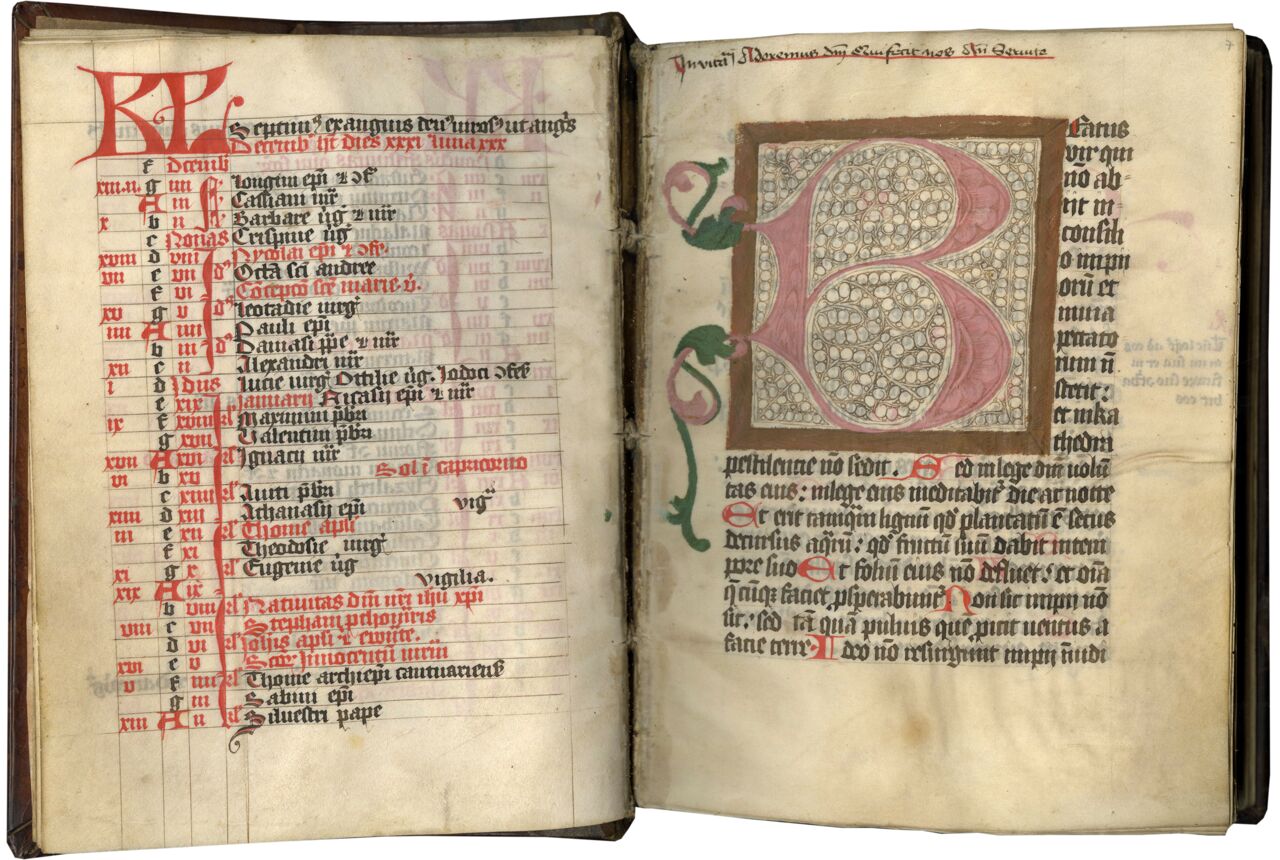 KL Septimus exanguis denus viros ut anguis
Decemb' ht dies xxxi luna xxx
f Decemb
xiii g iiii Longini epi & cf
A iii Cassiani mr
x b ii Barbare vg & mr
c Nonas Crispine vg
xviii d viii Nycolai epi & cf
vii e vii Octa sci andree
f vi Concepco sce marie v.
xv g v Leocadie virg
iiii A iiii Pauli epi
b iii Damasi ppe & mr
xii c ii Alexandri mr
i d Idus Lucie virg Ottilie vg. Jodoci cf
e xix Januarii Nicasii epi & mr
ix f xviii kl Maximini pbri
g xvii Valentini pbri
xvii A xvi kl Ignacii mr
vi b xv Sol i capricorno
c xiiii kl Auiti pbri
xiiii d xiii Athanasii epi vig
iii e xii kl Thome apli
f xi Theodosie virg
xi g x kl Eugenie vg
xix A ix vigilia.
b viii kl Natiuitas dni nri ihu xpi
viii c vii Stephani pthomris
d vi kl Johis apli & ewute.
xvi e v Scor Innocentu mrm
v f iiii kl Thome archiepi cantuariens
g iii Sabini epi
xiii A ii kl Siluestri pape
Inuita Adoremus dm Qui fecit nos
Beatus
vir qui
no ab-
iit in
consili
o impi
oru et
in uia
peccato
rum n
stetit:
et in ka
thedra
pestilencie no sedit. Sed in lege dni uolu
tas eius: in lege eius meditabit die ac nocte
Et erit tamqm lignum qd plantatu e secus
decursus aqru: qd fructu suu dabit in tem
pore suo Et foliu eius no defluet: et oia
q cuiq faciet psperabunt Non sit impii no
sic: sed ta qua puluis que picit uentus a
facie terre Ideo no resurgunt impii i iudi